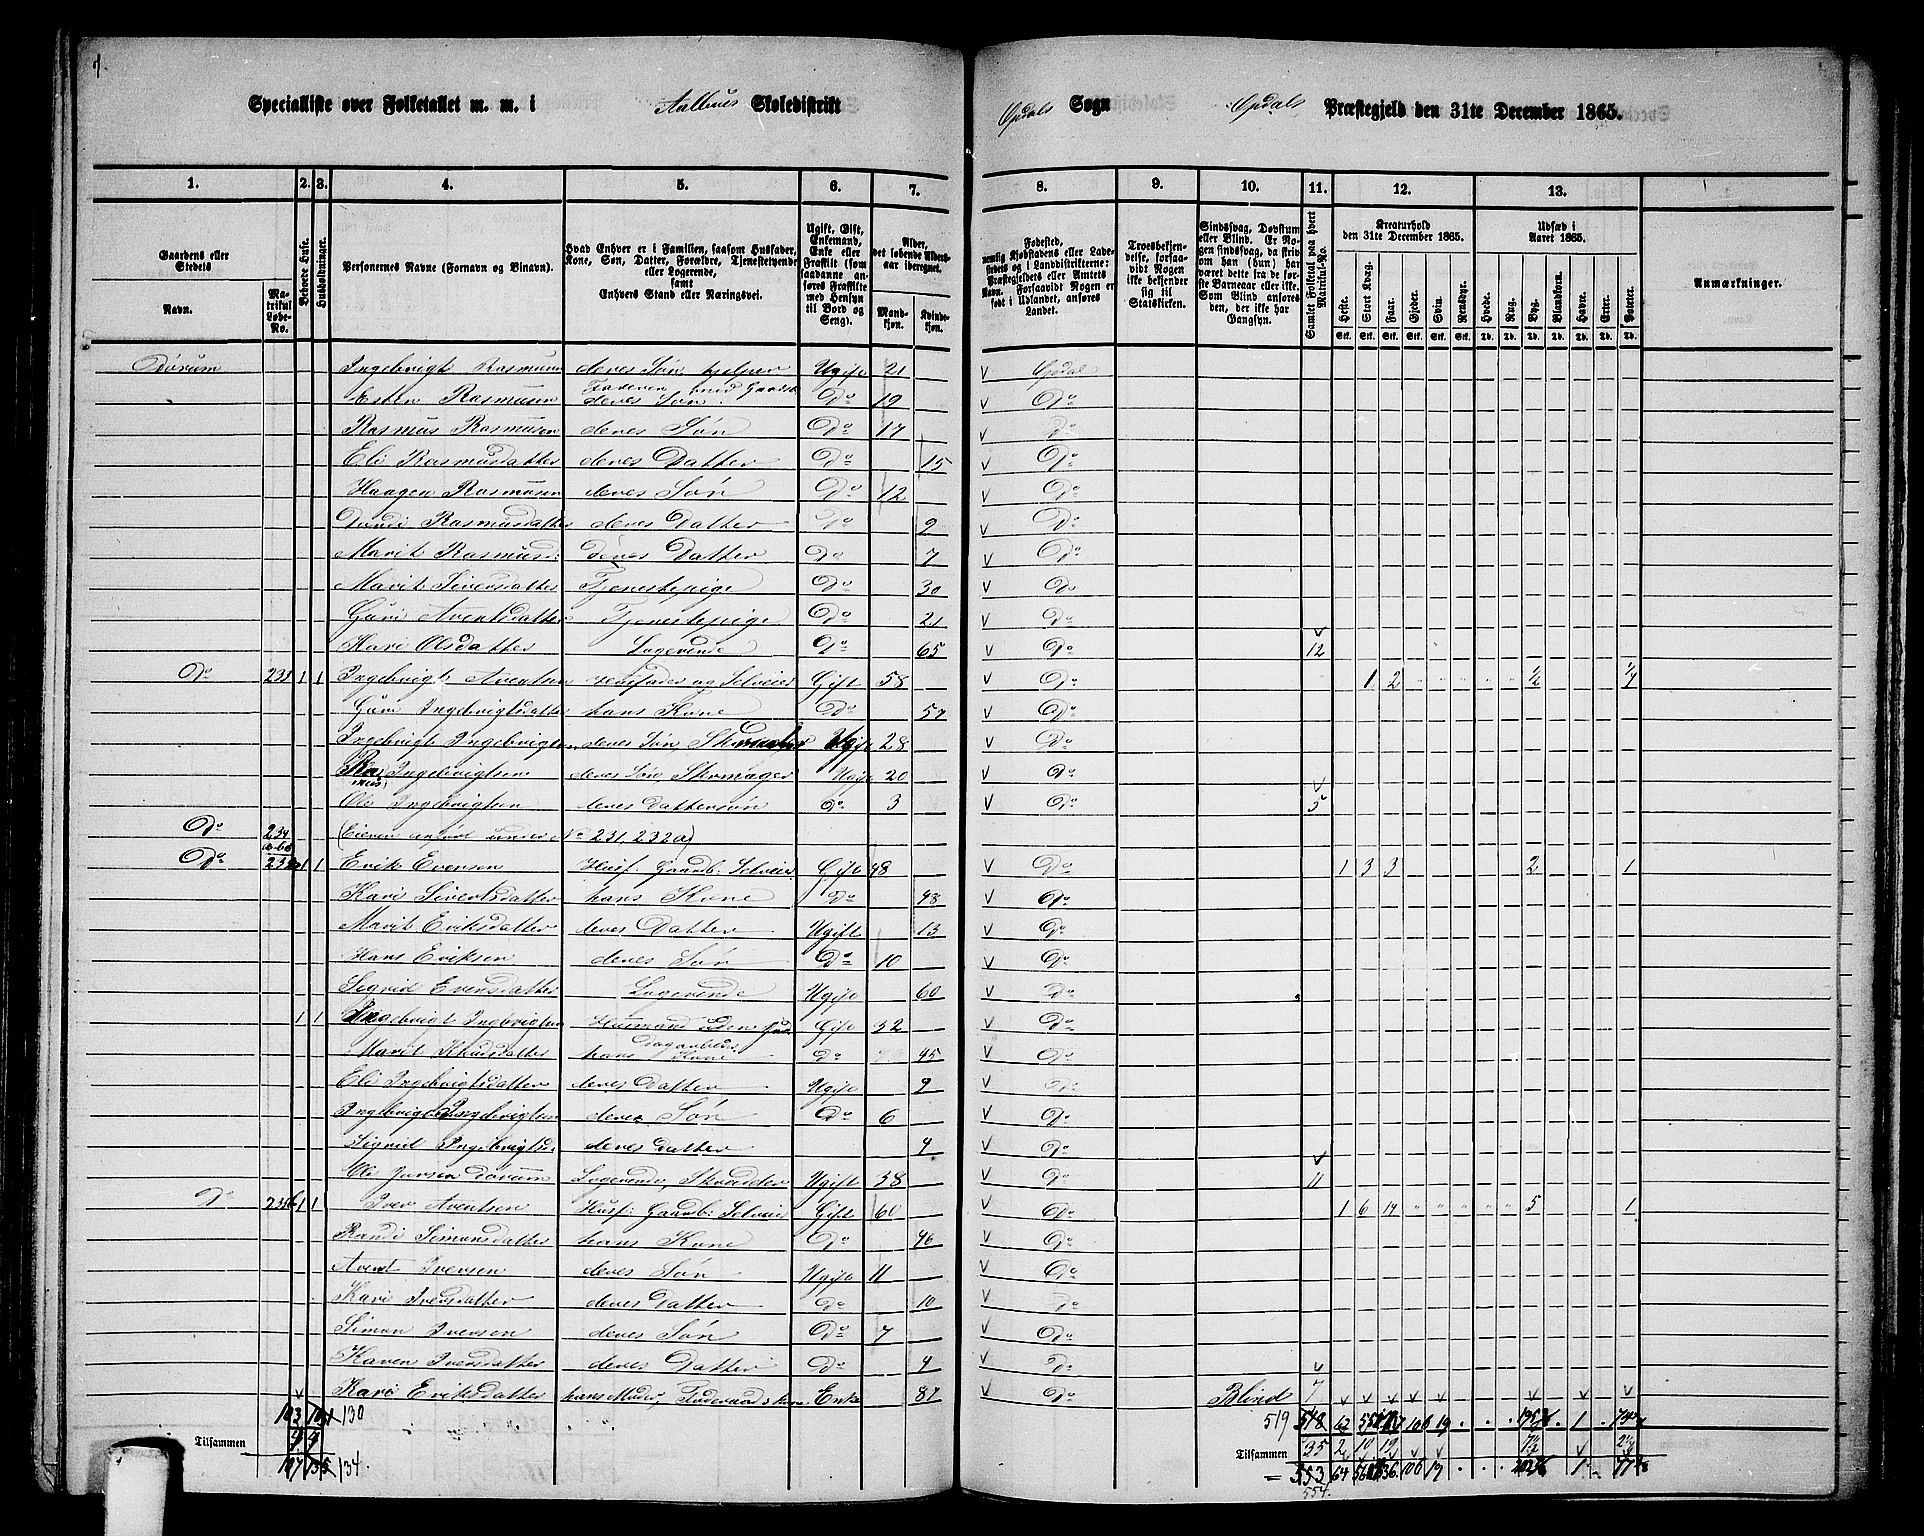 Specialliste over Folketallet m. m. i Aalbues Skoledistrikt Opdals Sogn Opdals Præstegjeld den 31te December 1865.
1. 2. 3. 4. 5. 6. 7. 8. 9. 10. 11. 12. 13.
Gaardens eller Stedets
Navn.
Matrikul Løbe-No.
Beboede Huse.
Husholdninger.
Personernes Navne (Fornavn og Binavn).
Hvad Enhver er i Familien, saasom Husfader, Kone, Søn, Datter, Forældre, Tjenestetyende eller Logerende, samt Enhvers Stand eller Næringsvei.
Ugift, Gift, Enkemand, Enke eller Fraskilt (som saadanne anføres Fraskilte med Hensyn til Bord og Seng).
Alder, det løbende Aldersaar iberegnet.
Mandkjøn. Kvindekjøn.
Fødested, nemlig Kjøbstadens eller Ladestedets og i Landdistrikterne: Præstegjeldets eller Amtets Navn. Forsaavidt Nogen er født i Udlandet, anføres Landet.
Troesbekjendelse, forsaavidt Nogen ikke bekjender sig til Statskirken.
Sindssvag, Døvstum eller Blind. Er Nogen sindssvag, da skrives om han (hun) har været dette fra de første Barneaar eller ikke. Som Blind anføres den, der ikke har Gangsyn.
Samlet Folketal paa hvert Matrikul-No.
Kreaturhold den 31te December 1865.
Heste. Stort Kvæg. Faar. Gjeder. Svin. Rensdyr.
Udsæd i Aaret 1865.
Hvede. Rug. Byg. Blandkorn. Havre. Erter. Poteter.
Anmærkninger.
Dørum Ingebrigt Rasmusen deres Søn hjelper Faderen med Gaardsb. Ugift 21 Opdal
Esten Rasmusen deres Søn Do 19 Do
Rasmus Rasmusen deres Søn Do 17 Do
Eli Rasmusdatter deres Datter Do 15 Do
Haagen Rasmusen deres Søn Do 12 Do
Rasmusdatter deres Datter Do 2 Do
Marit Rasmusd: deres Datter Do 7 Do
Marit Siversdatter Tjenestepige Do 30 Do
Guri Arentsdatter Tjenestepige Do 21 Do
Kari Olsdatter Logerende Do 65 Do 12
Do 233 1 1 Ingebrigt Arentsen Husfader og Selveier Gift 58 Do 1 2 " " " " " ½ ¼
Guri Ingebrigtsdatter hans Kone Do 57 Do
Ingebrigt Ingebrigtsen deres Søn, Skrædder Ugift 28 Do
Rasmus Ingebrigtsen deres Søn Skomager Ugift 20 Do
Ole Ingebrigtsen deres Dattersøn Do 3 Do 5
Do 234 (Eieren anført under No 231, 232a)
Do 235 1 1 Erik Evensen Husf: Gaardb: Selveier Gift 48 Do 1 3 3 2 1
Kari Sivertsdatter hans Kone Do 48 Do
Marit Eriksdatter deres Datter Ugift 13 Do
Hans Eriksen deres Søn Do 10 Do
Sigrid Evensdatter Logerende Ugift 60 Do
1 1 Ingebrigt Ingebrigtsen Husmand uden Jord Dagarbeider Gift 32 Do
Marit Knudsdatter hans Kone Do 45 Do
Eli Ingebrigtsdatter deres Datter Ugift 9 Do
Ingebrigt Ingebrigtsen deres Søn Do 6 Do
Sigrid Ingebrigtsd: deres Datter 4 Do
Ole Jonsen Dørum Logerende, Skrædder Ugift 38 Do 11
Do 236 1 1 Iver Arentsen Husf: Gaardb: Selveier Gift 60 Do 1 6 14 " " " " " 5 1
Randi Simonsdatter hans Kone Do 46 Do
Arent Iversen deres Søn Ugift 11 Do
Kari Iversdatter deres Datter Do 10 Do
Simon Iversen deres Søn Do 7 Do
Karen Iversdatter deres Datter Do 4 Do
Kari Eriksdatter hans Moder, Føderaadskone Enke 87 Do Blind 7
103 130 519 518 62 106 19 1
4 4 35 2 10 19
Tilsammen 107 135 134. Tilsammen = 553 64 106 19 1
554.